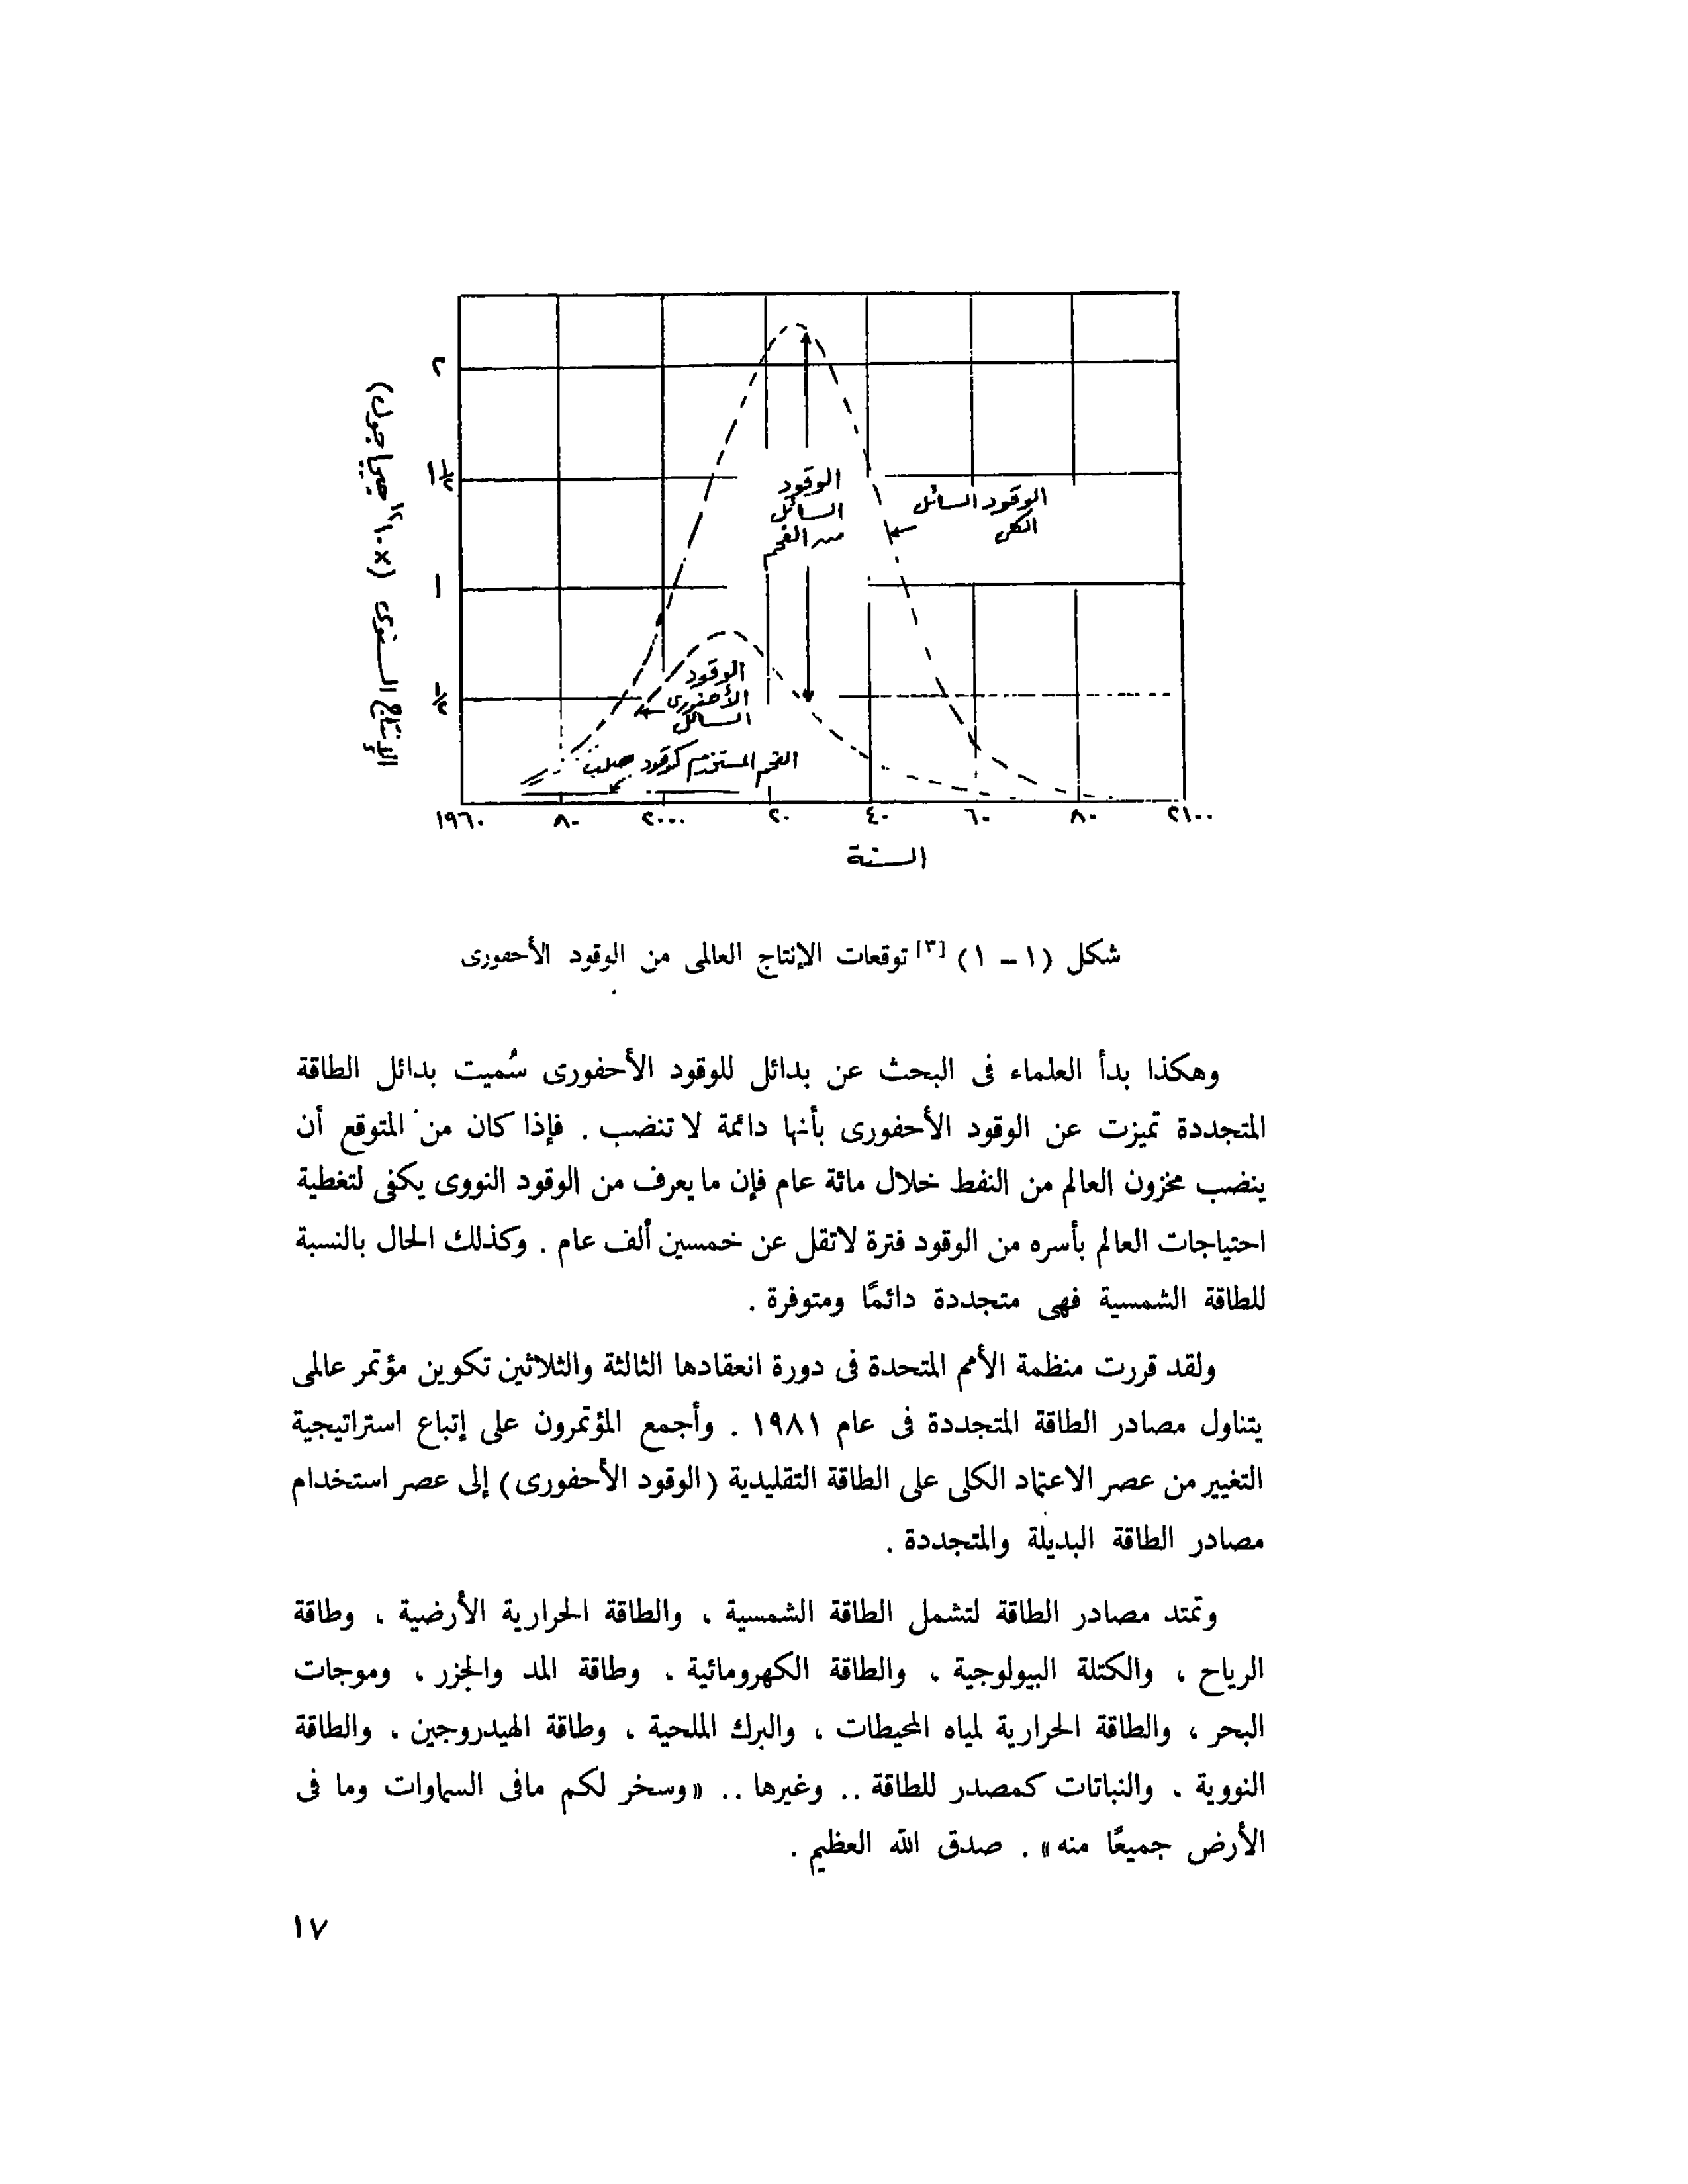 ٢
١ ١/٢
١
١/٢
الإنتاج السنوى (×١٠١٢ جيجا جول)
الوقود
السائل
من الفحم
الوقود السائل
الكلى
الوقود
الأحفورى
السائل
الفحم المستخدم كوقود صلب
١٩٦٠ ٨٠ ٢٠٠٠ ٢٠ ٤٠ ٦٠ ٨٠ ٢١٠٠
السنة
شكل (١ – ١) [٣] توقعات الإنتاج العالمى من الوقود الأحفورى
وهكذا بدأ العلماء فى البحث عن بدائل للوقود الأحفورى سُميت بدائل الطاقة
المتجددة تميزت عن الوقود الأحفورى بأنها دائمة لا تنضب . فإذا كان من المتوقع أن
ينضب مخزون العالم من النفط خلال مائة عام فإن ما يعرف من الوقود النووى يكفى لتغطية
احتياجات العالم بأسره من الوقود فترة لاتقل عن خمسين ألف عام . وكذلك الحال بالنسبة
للطاقة الشمسية فهى متجددة دائمًا ومتوفرة .
ولقد قررت منظمة الأمم المتحدة فى دورة انعقادها الثالثة والثلاثين تكوين مؤتمر عالمى
يتناول مصادر الطاقة المتجددة فى عام ١٩٨١ . وأجمع المؤتمرون على إتباع استراتيجية
التغيير من عصر الاعتماد الكلى على الطاقة التقليدية (الوقود الأحفورى) إلى عصر استخدام
مصادر الطاقة البديلة والمتجددة .
وتمتد مصادر الطاقة لتشمل الطاقة الشمسية ، والطاقة الحرارية الأرضية ، وطاقة
الرياح ، والكتلة البيولوجية ، والطاقة الكهرومائية ، وطاقة المد والجزر ، وموجات
البحر ، والطاقة الحرارية لمياه المحيطات ، والبرك الملحية ، وطاقة الهيدروجين ، والطاقة
النووية ، والنباتات كمصدر للطاقة .. وغيرها .. «وسخر لكم مافى السماوات وما فى
الأرض جميعًا منه» . صدق الله العظيم .
١٧